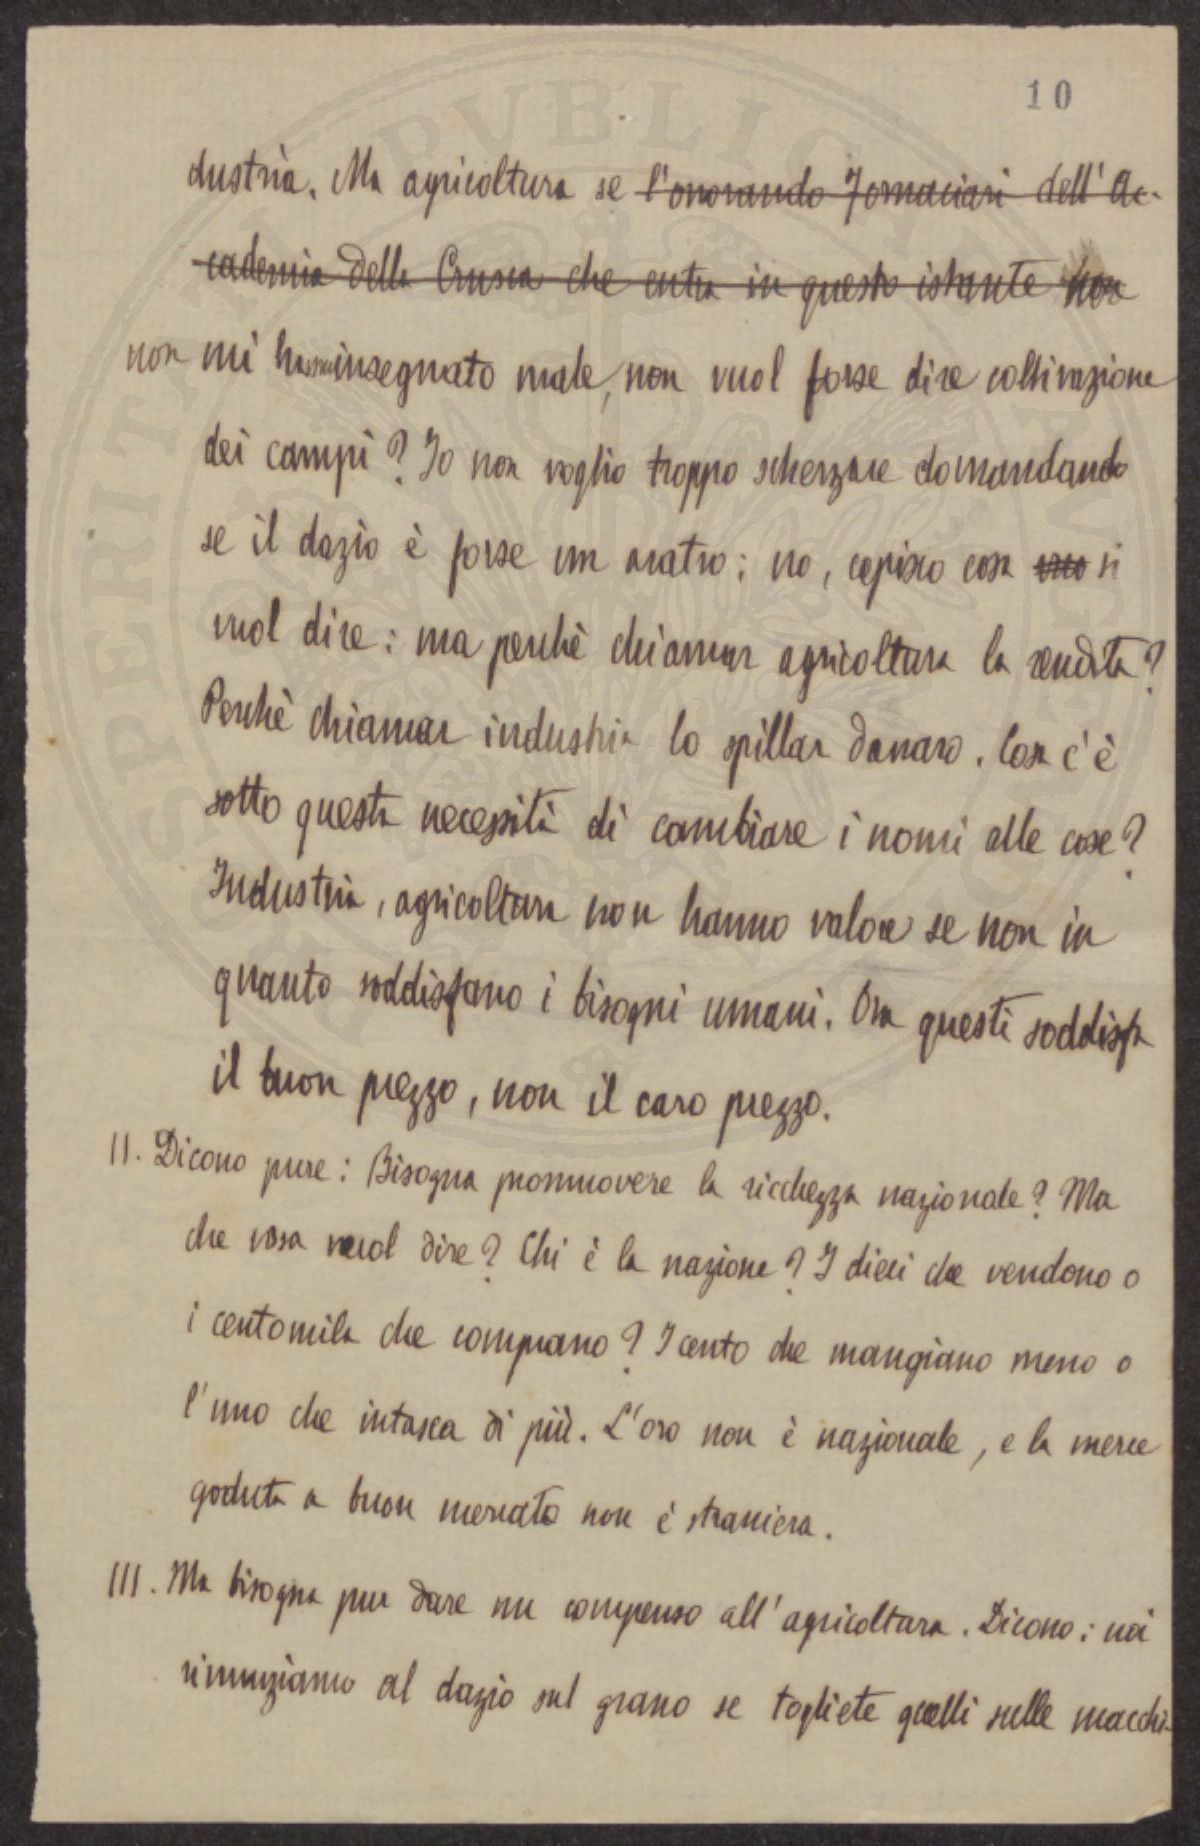 10
dustria. Ma agricoltura se l'onorando Fornaciari dell'Ac-
cademia della Crusca che entra in questo istante non
non mi hanno insegnato male, non vuol forse dire coltivazione
dei campi? Io non voglio troppo scherzare domandando
se il dazio è forse un aratro; no, capisco cosa si
vuol dire: ma perchè chiamar agricoltura la rendita?
Perchè chiamar industria lo spillar danaro. Cosa c'è
sotto questa necessità di cambiare i nomi alle cose?
Industria, agricoltura non hanno valore se non in
quanto soddisfano i bisogni umani. Ora questi soddisfa
il buon prezzo, non il caro prezzo.
II. Dicono pure: Bisogna promuovere la ricchezza nazionale? Ma
che cosa vuol dire? Chi è la nazione? I dieci che vendono o
i centomila che comprano? I cento che mangiano meno o
l'uno che intasca di più. L'oro non è nazionale, e la merce
goduta a buon mercato non è straniera.
III. Ma bisogna pur dare un compenso all'agricoltura. Dicono: noi
rinunziamo al dazio sul grano se togliete quelli sulle macchi-